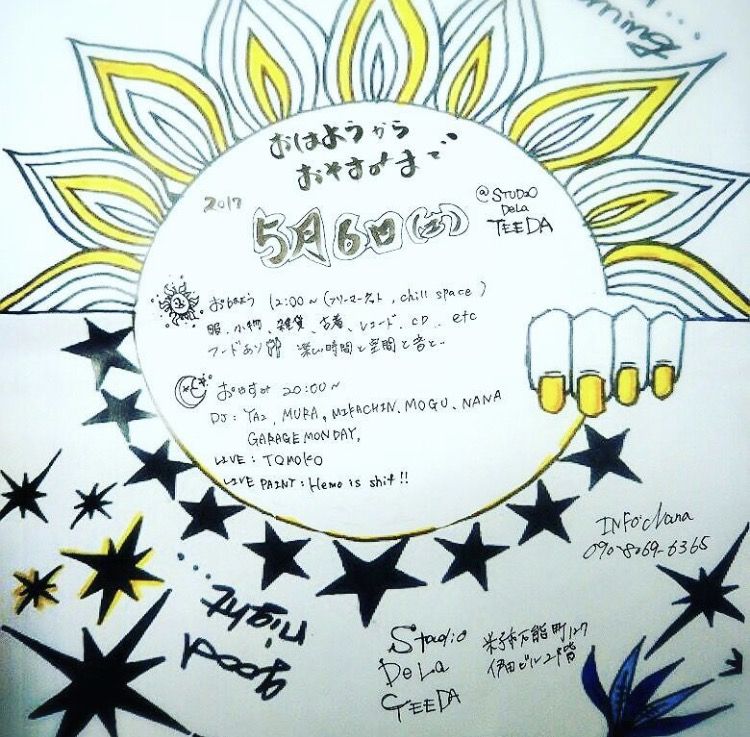 morning
おはようから
おやすみまで
2017
5月6日(土)
@STUDIO
DeLa
TEEDA
おはよう 12:00~(フリーマーケット, chill space)
服、小物、雑貨、古着、レコード、CD、etc
フードあり 楽しい時間と空間と音と…
おやすみ 20:00~
DJ: YAZ, MURA, MIKACHIN, MOGU, NANA
GARAGEMONDAY,
LIVE: TOMOKO
LIVE PAINT: Hemo is shit!!
INFO: Nana
090-8069-6365
good
night
...
Studio
DeLa
TEEDA
米子市万能町127
伊田ビル2階